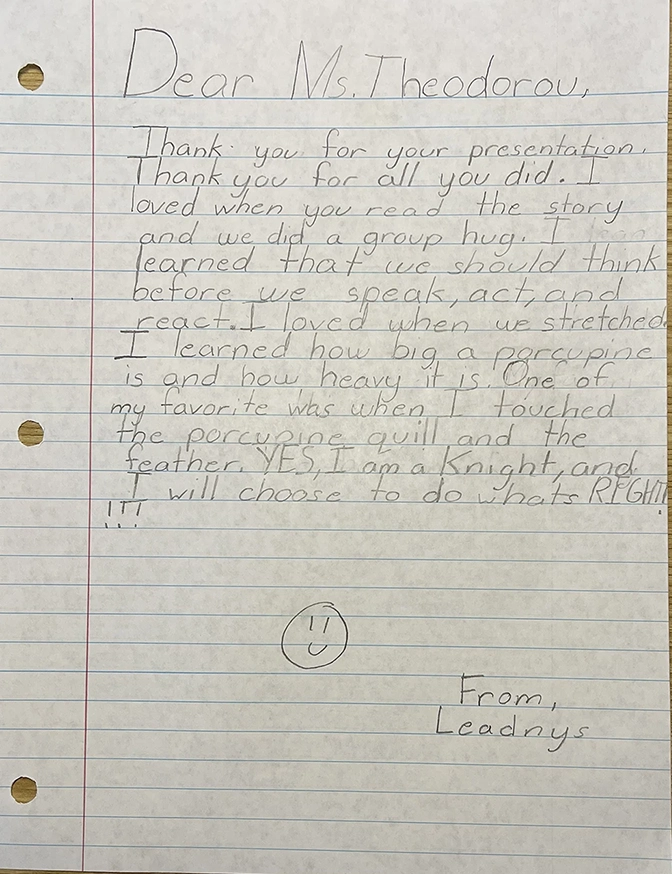 Dear Ms. Theodorou,
Thank you for your presentation.
Thank you for all you did. I
loved when you read the story
and we did a group hug. I
learned that we should think
before we speak, act, and
react. I loved when we stretched
I learned how big a porcupine
is and how heavy it is. One of
my favorite was when I touched
the porcupine quill and the
feather. YES, I am a Knight, and
I will choose to do whats RIGHT!
!!!
From,
Leadnys